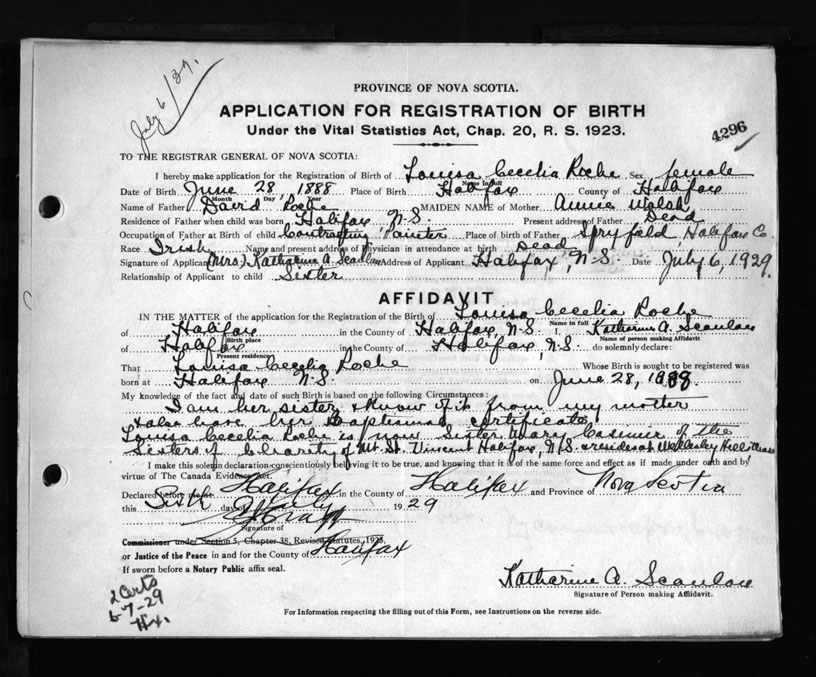 July 6/29.
PROVINCE OF NOVA SCOTIA.
APPLICATION FOR REGISTRATION OF BIRTH
Under the Vital Statistics Act, Chap. 20, R. S. 1923.
4296
TO THE REGISTRAR GENERAL OF NOVA SCOTIA:
I hereby make application for the Registration of Birth of Louisa Cecelia Roche Sex female
Name in full
Date of Birth June 28, 1888 Place of Birth Halifax County of Halifax
Month Day Year
Name of Father David Roche MAIDEN NAME of Mother Annie Walsh
Residence of Father when child was born Halifax N.S. Present address of Father Dead
Occupation of Father at Birth of child Contracting Painter Place of birth of Father Spryfield, Halifax Co.
Race Irish Name and present address of Physician in attendance at birth dead
Signature of Applicant (Mrs.) Katharine A. Scanlan Address of Applicant Halifax, N.S. Date July 6, 1929.
Relationship of Applicant to child Sister
AFFIDAVIT
IN THE MATTER of the application for the Registration of the Birth of Louisa Cecelia Roche
Name in full
of Halifax in the County of Halifax, N.S. I, Katharine A. Scanlan
Birth place Name of person making Affidavit
of Halifax in the County of Halifax, N.S. do solemnly declare:
Present residence
That Louisa Cecelia Roche Whose Birth is sought to be registered was
born at Halifax N.S. on June 28, 1888.
My knowledge of the fact and date of such Birth is based on the following Circumstances:
I am her sister & know of it from my mother
& also have her Baptismal certificate
Louisa Cecelia Roche is now Sister Mary Casimir of the
Sisters of Charity of Mt. St. Vincent Halifax, N.S. & resides at Wellesley Hills Mass
I make this solemn declaration conscientiously believing it to be true, and knowing that it is of the same force and effect as if made under oath and by
virtue of The Canada Evidence Act.
Declared before me at Halifax in the County of Halifax and Province of Nova Scotia
this Sixth day of July 1929
Signature of
Commissioner under Section 5, Chapter 38, Revised Statutes, 1923,
or Justice of the Peace in and for the County of Halifax
If sworn before a Notary Public affix seal.
Katharine A. Scanlan
Signature of Person making Affidavit.
2 Certs
6-7-29
Hx.
For Information respecting the filling out of this Form, see Instructions on the reverse side.